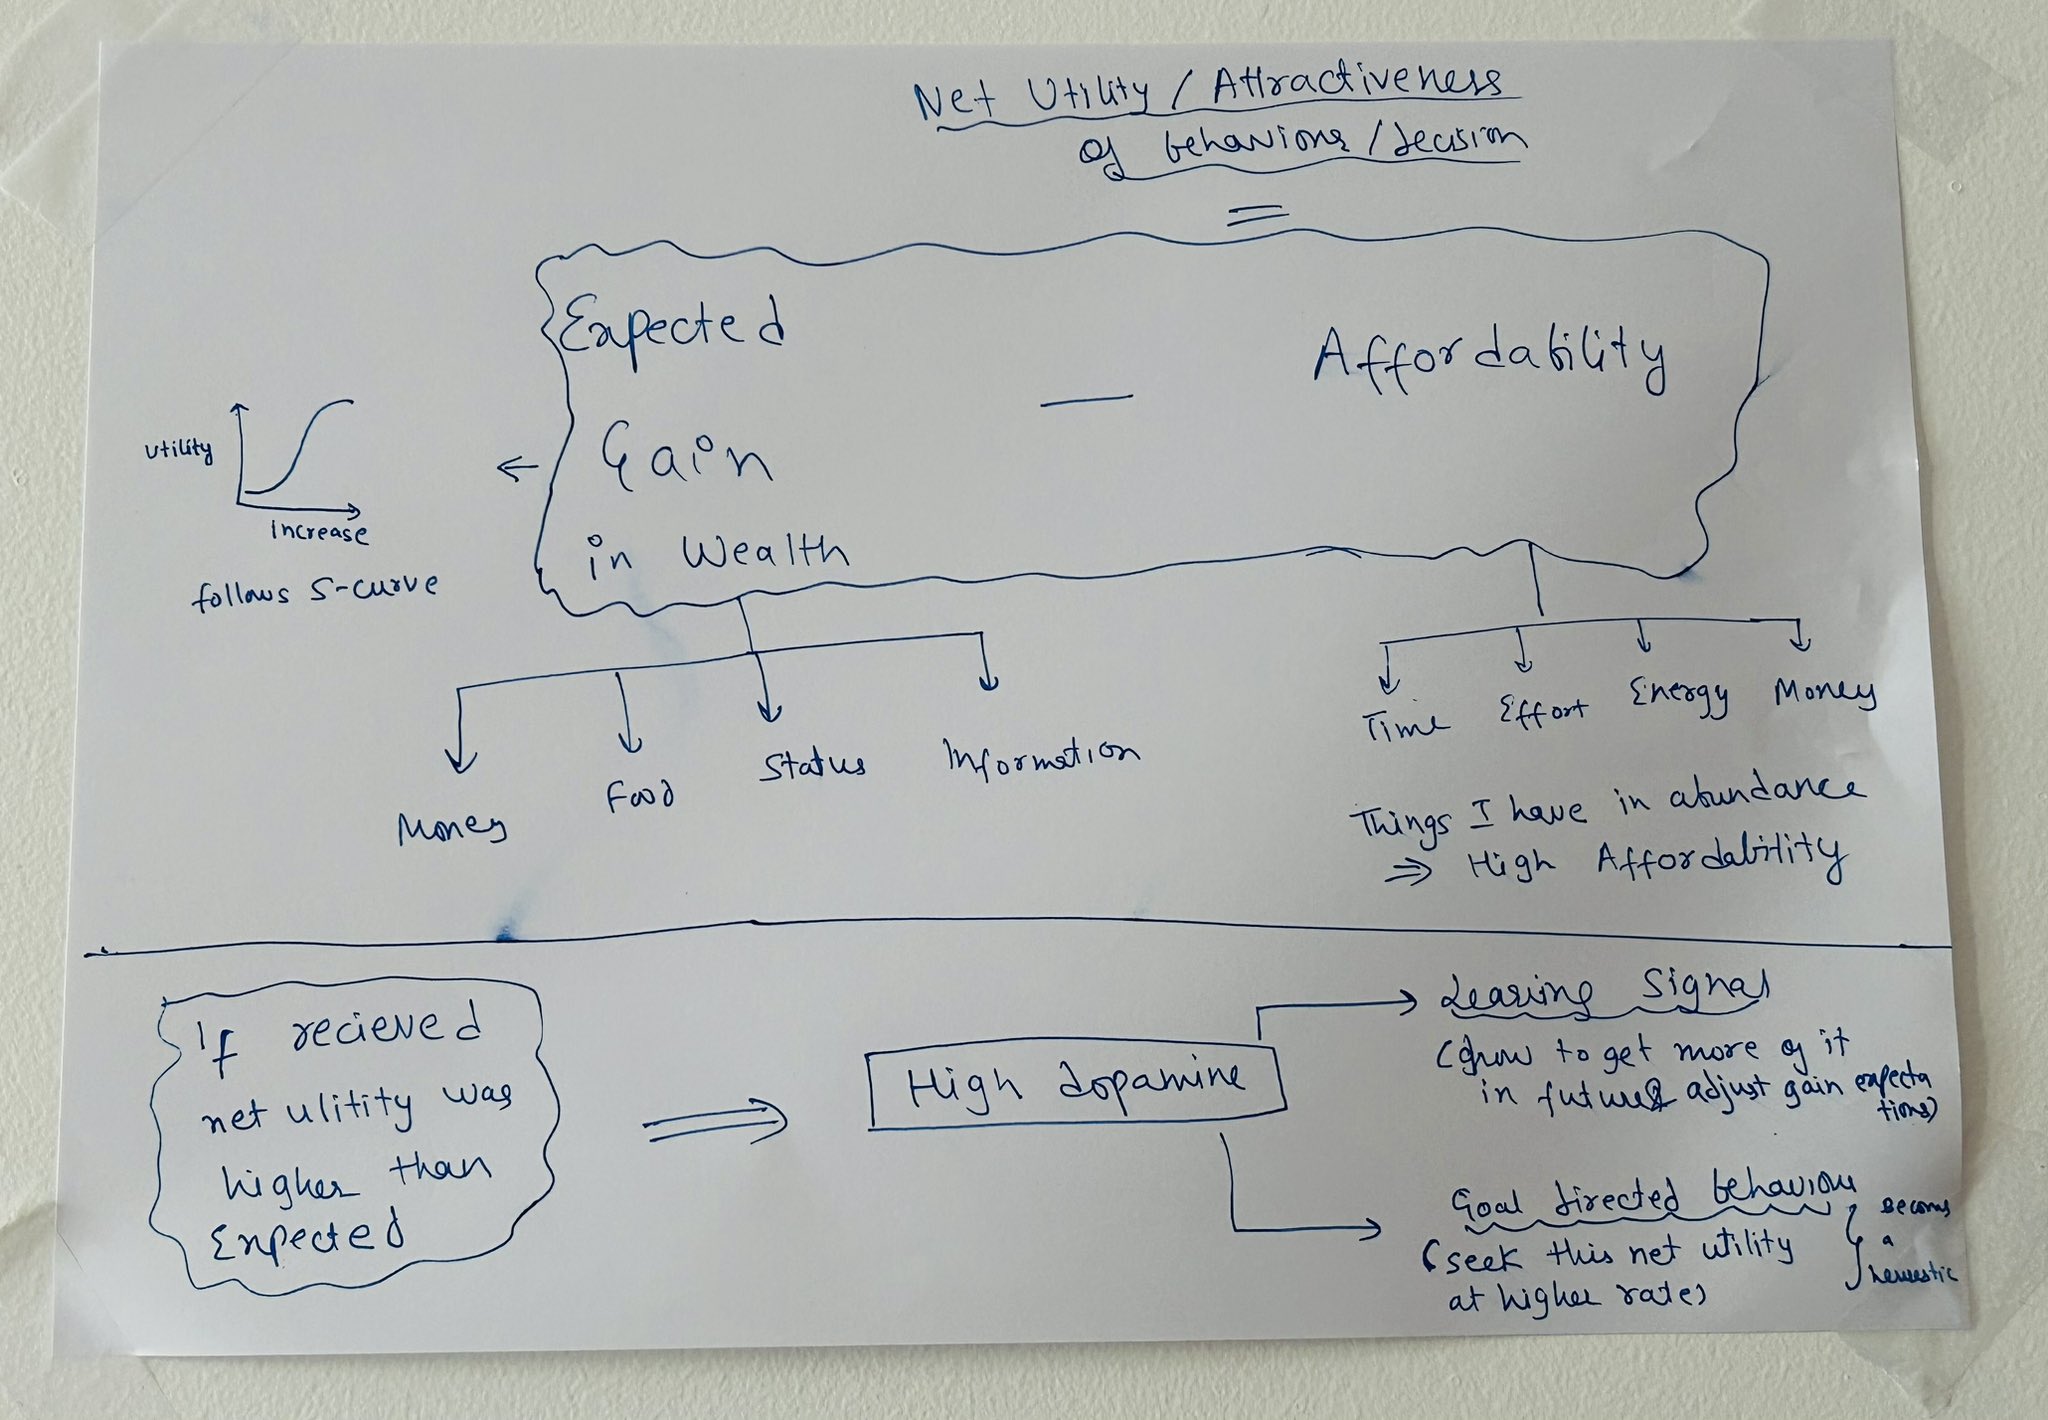 Net Utility / Attractiveness
of behaviour / decision
=
Expected
Gain
in Wealth
—
Affordability
Utility
Increase
follows S-curve
Money
Food
Status
Information
Time
Effort
Energy
Money
Things I have in abundance
⇒ High Affordability
If recieved
net ulitity was
higher than
Expected
High dopamine
Learing Signal
to get more of it
in future & adjust gain expecta
tions)
Goal directed behaviour
(seek this net utility
at higher rate)
becoms
a
heurestic